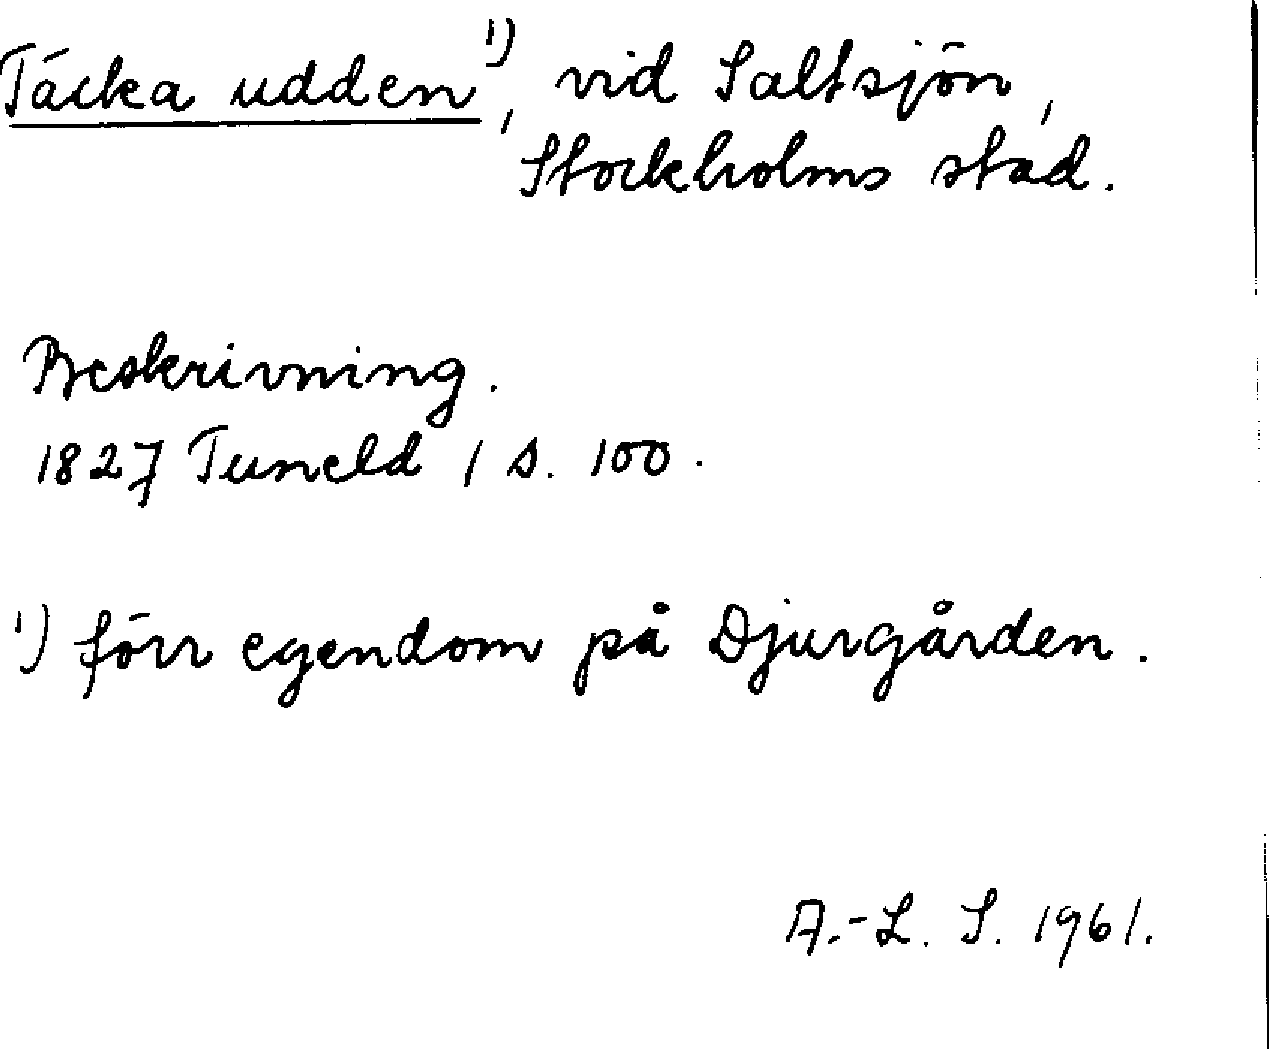 Täcka udden ¹), vid Saltsjön,
Stockholms stad.
Beskrivning.
1827 Tuneld 1 s. 100.
¹) förr egendom på Djurgården.
A.-L. S. 1961.